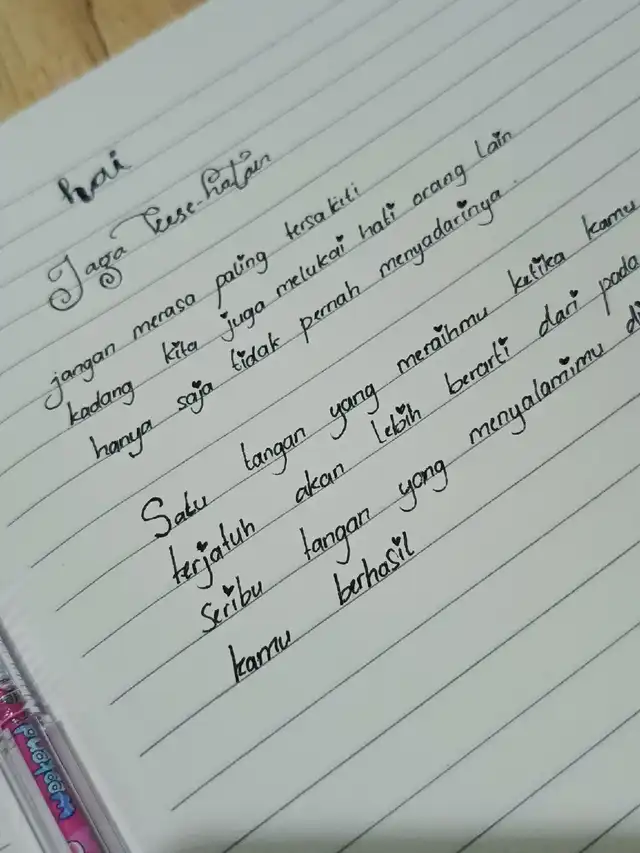 hai
Jaga kese-hatan
jangan merasa paling tersakiti
kadang kita juga melukai hati orang lain
hanya saja tidak pernah menyadarinya.
Satu tangan yang meraihmu ketika kamu
terjatuh akan lebih berarti dari pada
seribu tangan yang menyalamimu di
kamu berhasil